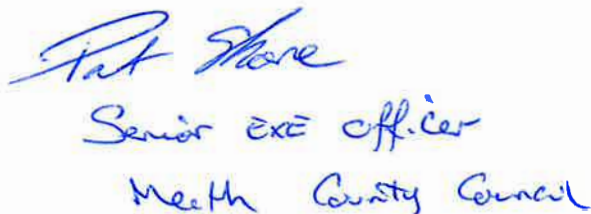 Pat Shore
Senior EXE officer
Meath County Council